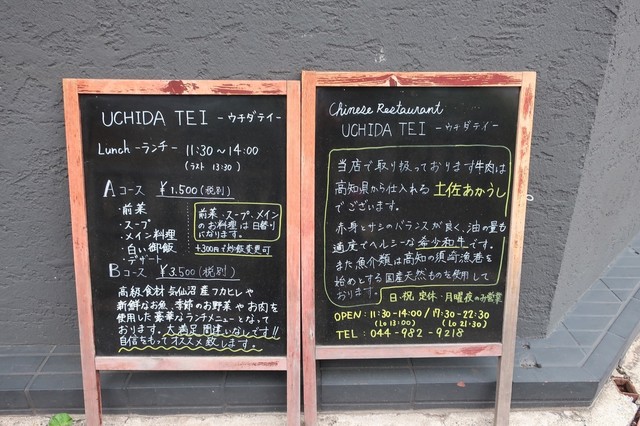 UCHIDA TEI -ウチダテイ-
Lunch -ランチ- 11:30～14:00
(ラスト 13:30)
Aコース ¥1,500(税別)
・前菜
・スープ
・メイン料理
・白い御飯
・デザート
前菜・スープ・メイン
のお料理は日替り
になります。
+300円で炒飯変更可
Bコース ¥3,500(税別)
高級食材気仙沼産フカヒレや
新鮮なお魚、季節のお野菜やお肉を
使用した豪華なランチメニューとなって
おります。大満足間違いなしです!!
自信をもってオススメ致します。
Chinese Restaurant
UCHIDA TEI -ウチダテイ-
当店で取り扱っております牛肉は
高知県から仕入れる 土佐あかうし
でございます。
赤身とサシのバランスが良く、油の量も
適度でヘルシーな希少和牛です。
また魚介類は高知の須崎漁港を
始めとする国産天然ものを使用して
おります。
日・祝 定休・月曜夜のみ営業
OPEN:11:30-14:00/17:30-22:30
(Lo 13:00) (Lo 21:30)
TEL:044-982-9218